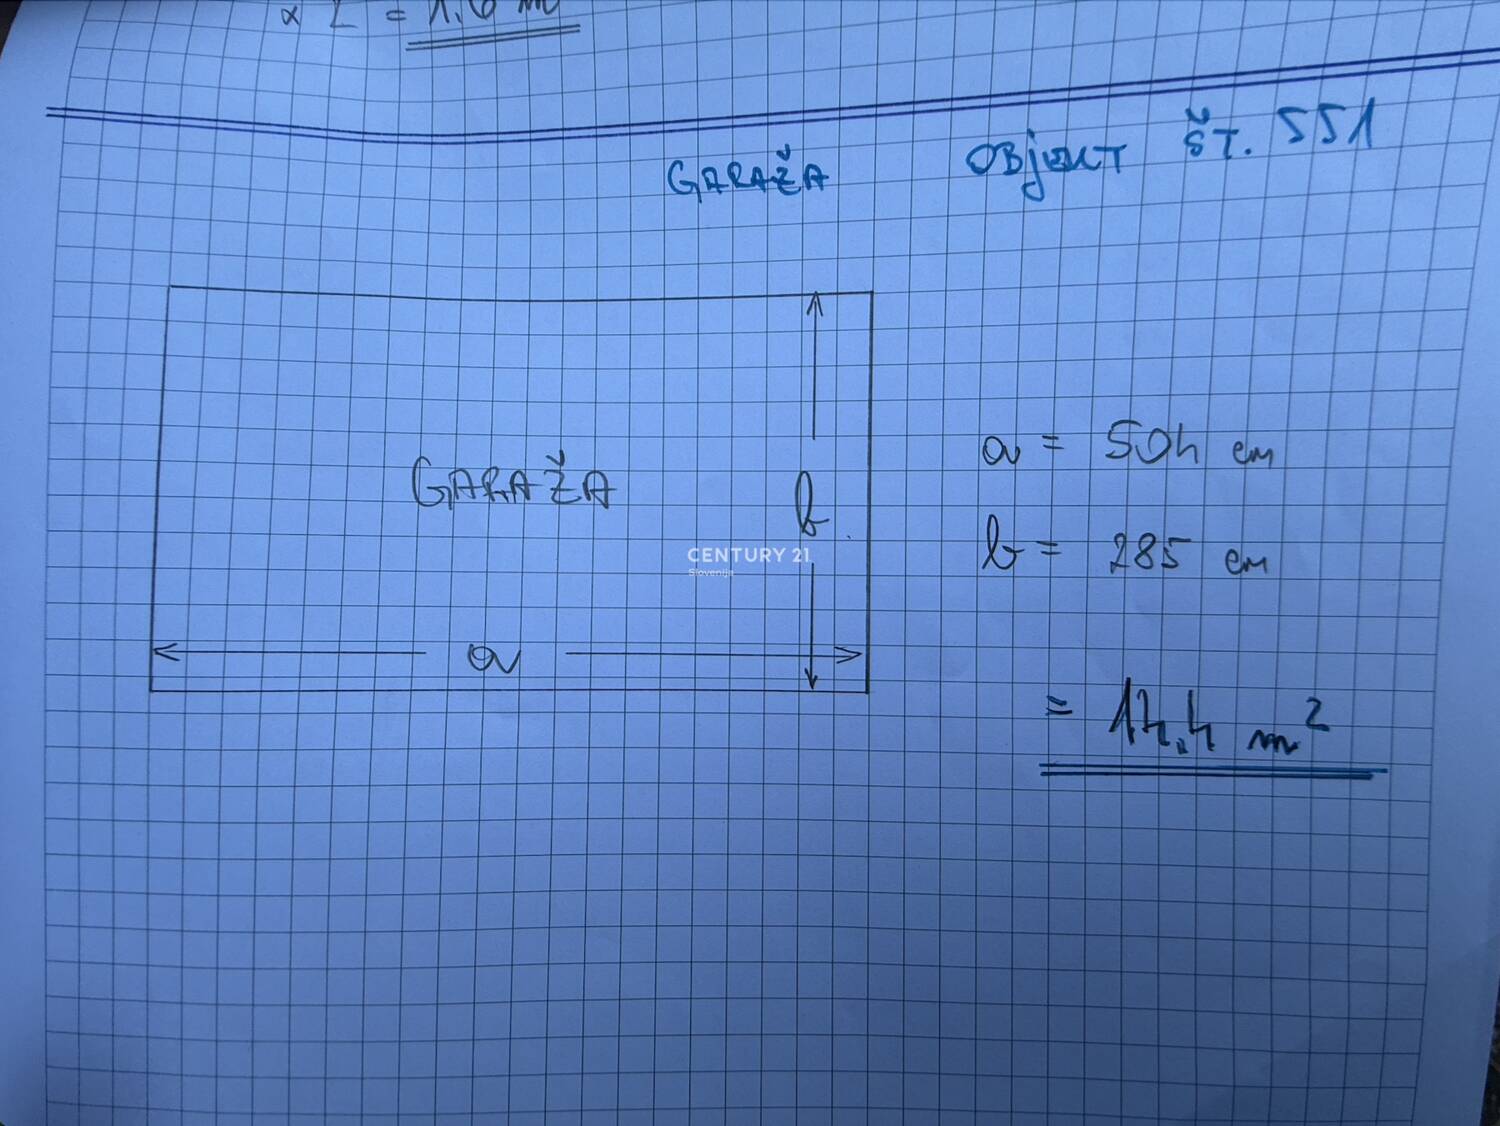 × 2 = 1.6 m
GARAŽA OBJEKT ŠT. 551
GARAŽA
a
b
a = 504 cm
b = 285 cm
= 14.4 m²
CENTURY 21
Slovenija